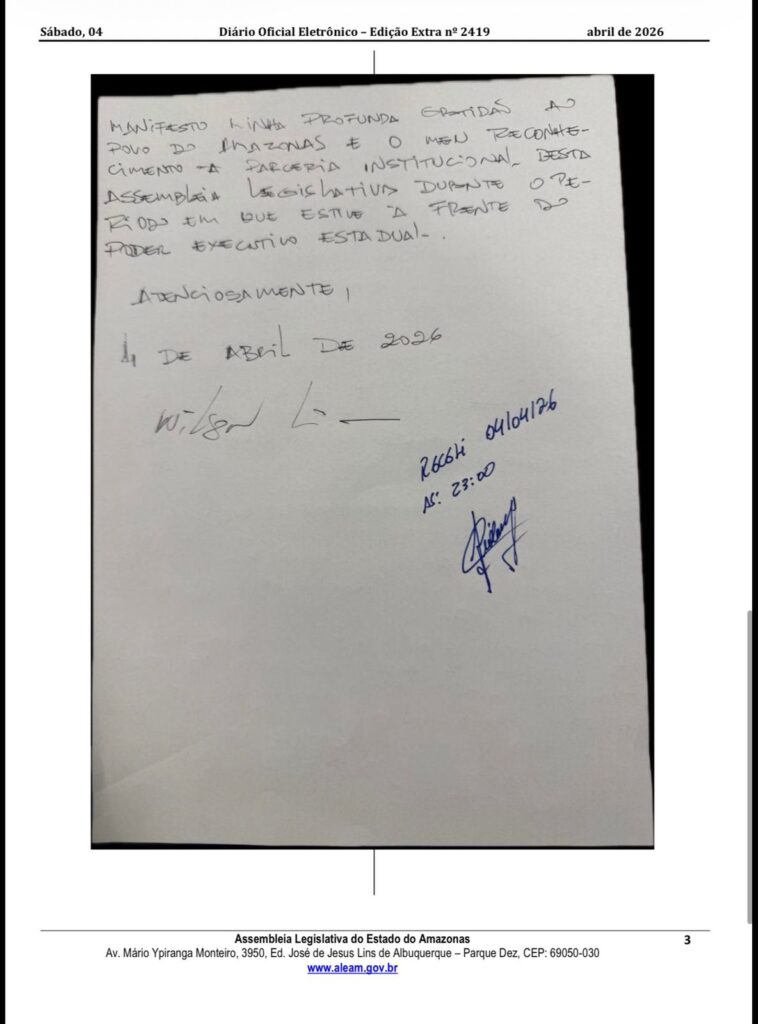 Sábado, 04 Diário Oficial Eletrônico – Edição Extra nº 2419 abril de 2026
MANIFESTO MINHA PROFUNDA GRATIDÃO AO
POVO DO AMAZONAS E O MEU RECONHE-
CIMENTO A PARCERIA INSTITUCIONAL DESTA
ASSEMBLEIA LEGISLATIVA DURANTE O PE-
RÍODO EM QUE ESTIVE À FRENTE DO
PODER EXECUTIVO ESTADUAL.
ATENCIOSAMENTE,
4 DE ABRIL DE 2026
Wilson Li
Recebi 04/04/26
AS: 23:00
Assembleia Legislativa do Estado do Amazonas
3
Av. Mário Ypiranga Monteiro, 3950, Ed. José de Jesus Lins de Albuquerque – Parque Dez, CEP: 69050-030
www.aleam.gov.br